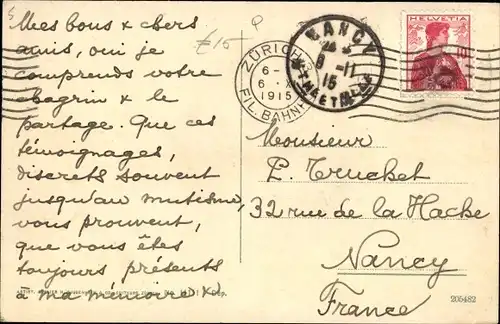 Mes bons & chers
amis, oui je
comprends votre
chagrin & le
partage. Que ces
témoignages,
discrets souvent
jusqu'au mutisme,
vous prouvent,
que vous êtes
toujours présents
à ma mémoire
£15
ZÜRICH
6-
1915
FIL. BAHNH
NANCY
-11
15
MEURTHE ET MOSELLE
HELVETIA
Monsieur
P. Truchet
32 rue de la Hache
Nancy
France
205482